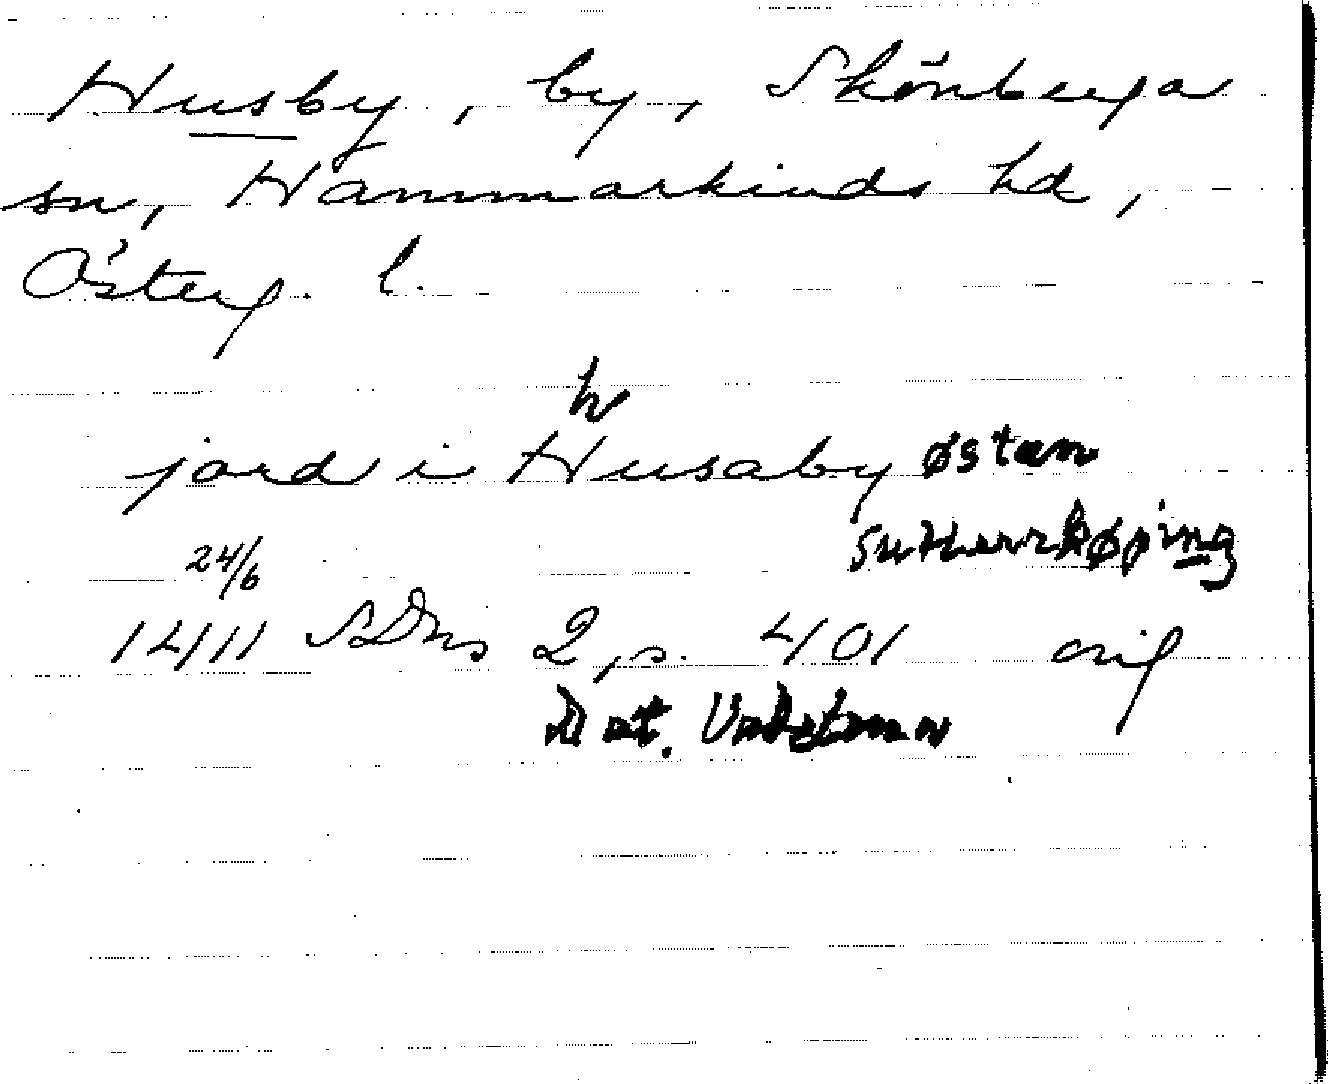 Husby, by, Skönberga
sn, Hammarkinds hd,
Österg. l.
h
jord i Husaby østan
sutherrkøping
24/6
1411 SDns 2, s. 401 orig
Dat. Vadstena